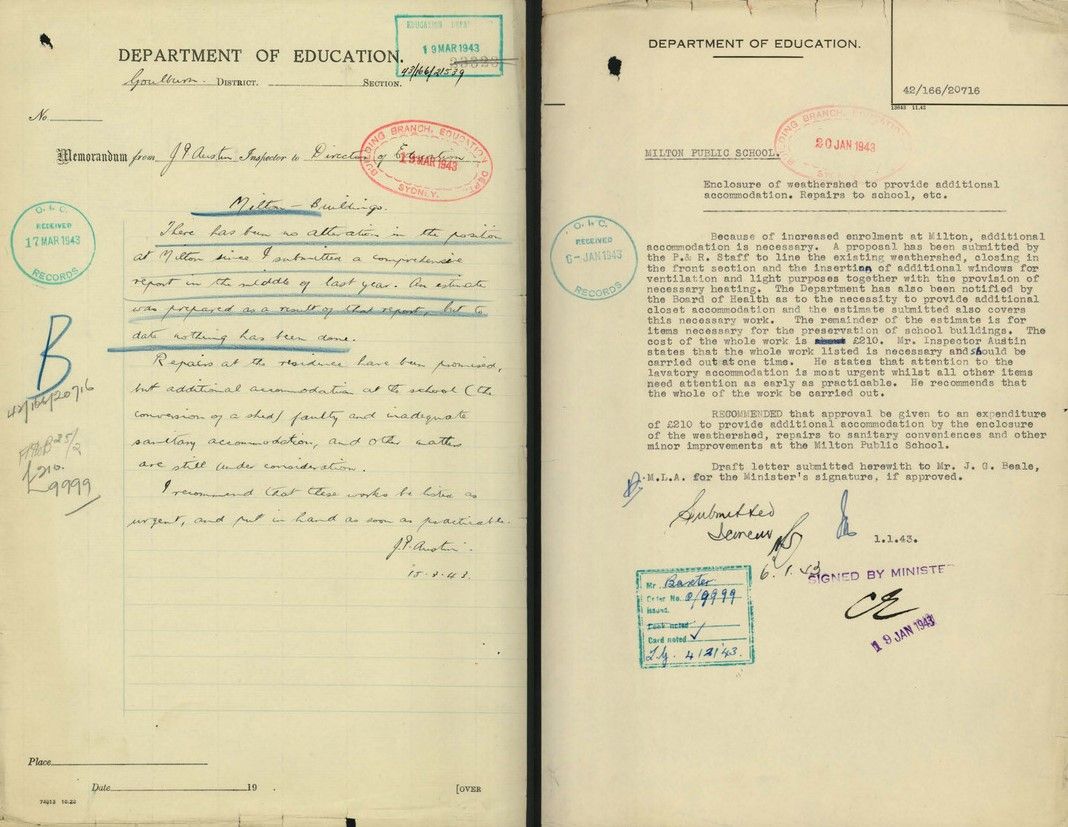 EDUCATION DEPT
19 MAR 1943
23323
DEPARTMENT OF EDUCATION.
43/166/21539
Goulburn. DISTRICT. SECTION.
No.
Memorandum from J.P. Austin Inspector to Director of Education
BUILDING BRANCH, EDUCATION DEPT.
19 MAR 1943
SYDNEY.
Milton - Buildings.
O. I. C.
RECEIVED
17 MAR 1943
RECORDS
There has been no alteration in the position
at Milton since I submitted a comprehensive
report in the middle of last year. An estimate
was prepared as a result of that report, but to
date nothing has been done.
B
42/166/20716
25/2
£210.
9999
Repairs at the residence have been promised,
but additional accommodation at the school (the
conversion of a shed) faulty and inadequate
sanitary accommodation, and other matters
are still under consideration.
I recommend that these works be listed as
urgent, and put in hand as soon as practicable.
J.P. Austin.
15-3-43.
Place
Date 19 .
[OVER
DEPARTMENT OF EDUCATION.
42/166/20716
BUILDING BRANCH, EDUCATION DEPT.
20 JAN 1943
SYDNEY.
MILTON PUBLIC SCHOOL.
Enclosure of weathershed to provide additional
accommodation. Repairs to school, etc.
O. I. C.
RECEIVED
6-JAN 1943
RECORDS
Because of increased enrolment at Milton, additional
accommodation is necessary. A proposal has been submitted by
the P.& R. Staff to line the existing weathershed, closing in
the front section and the insertion of additional windows for
ventilation and light purposes together with the provision of
necessary heating. The Department has also been notified by
the Board of Health as to the necessity to provide additional
closet accommodation and the estimate submitted also covers
this necessary work. The remainder of the estimate is for
items necessary for the preservation of school buildings. The
cost of the whole work is £210. Mr. Inspector Austin
states that the whole work listed is necessary and should be
carried out at one time. He states that attention to the
lavatory accommodation is most urgent whilst all other items
need attention as early as practicable. He recommends that
the whole of the work be carried out.
RECOMMENDED that approval be given to an expenditure
of £210 to provide additional accommodation by the enclosure
of the weathershed, repairs to sanitary conveniences and other
minor improvements at the Milton Public School.
Draft letter submitted herewith to Mr. J. G. Beale,
M.L.A. for the Minister's signature, if approved.
Submitted
1.1.43.
6.1.43
SIGNED BY MINISTE
19 JAN 1943
Mr. Baxter
Order No. 9999
issued.
Book noted
Card noted ✓
4/2/43.